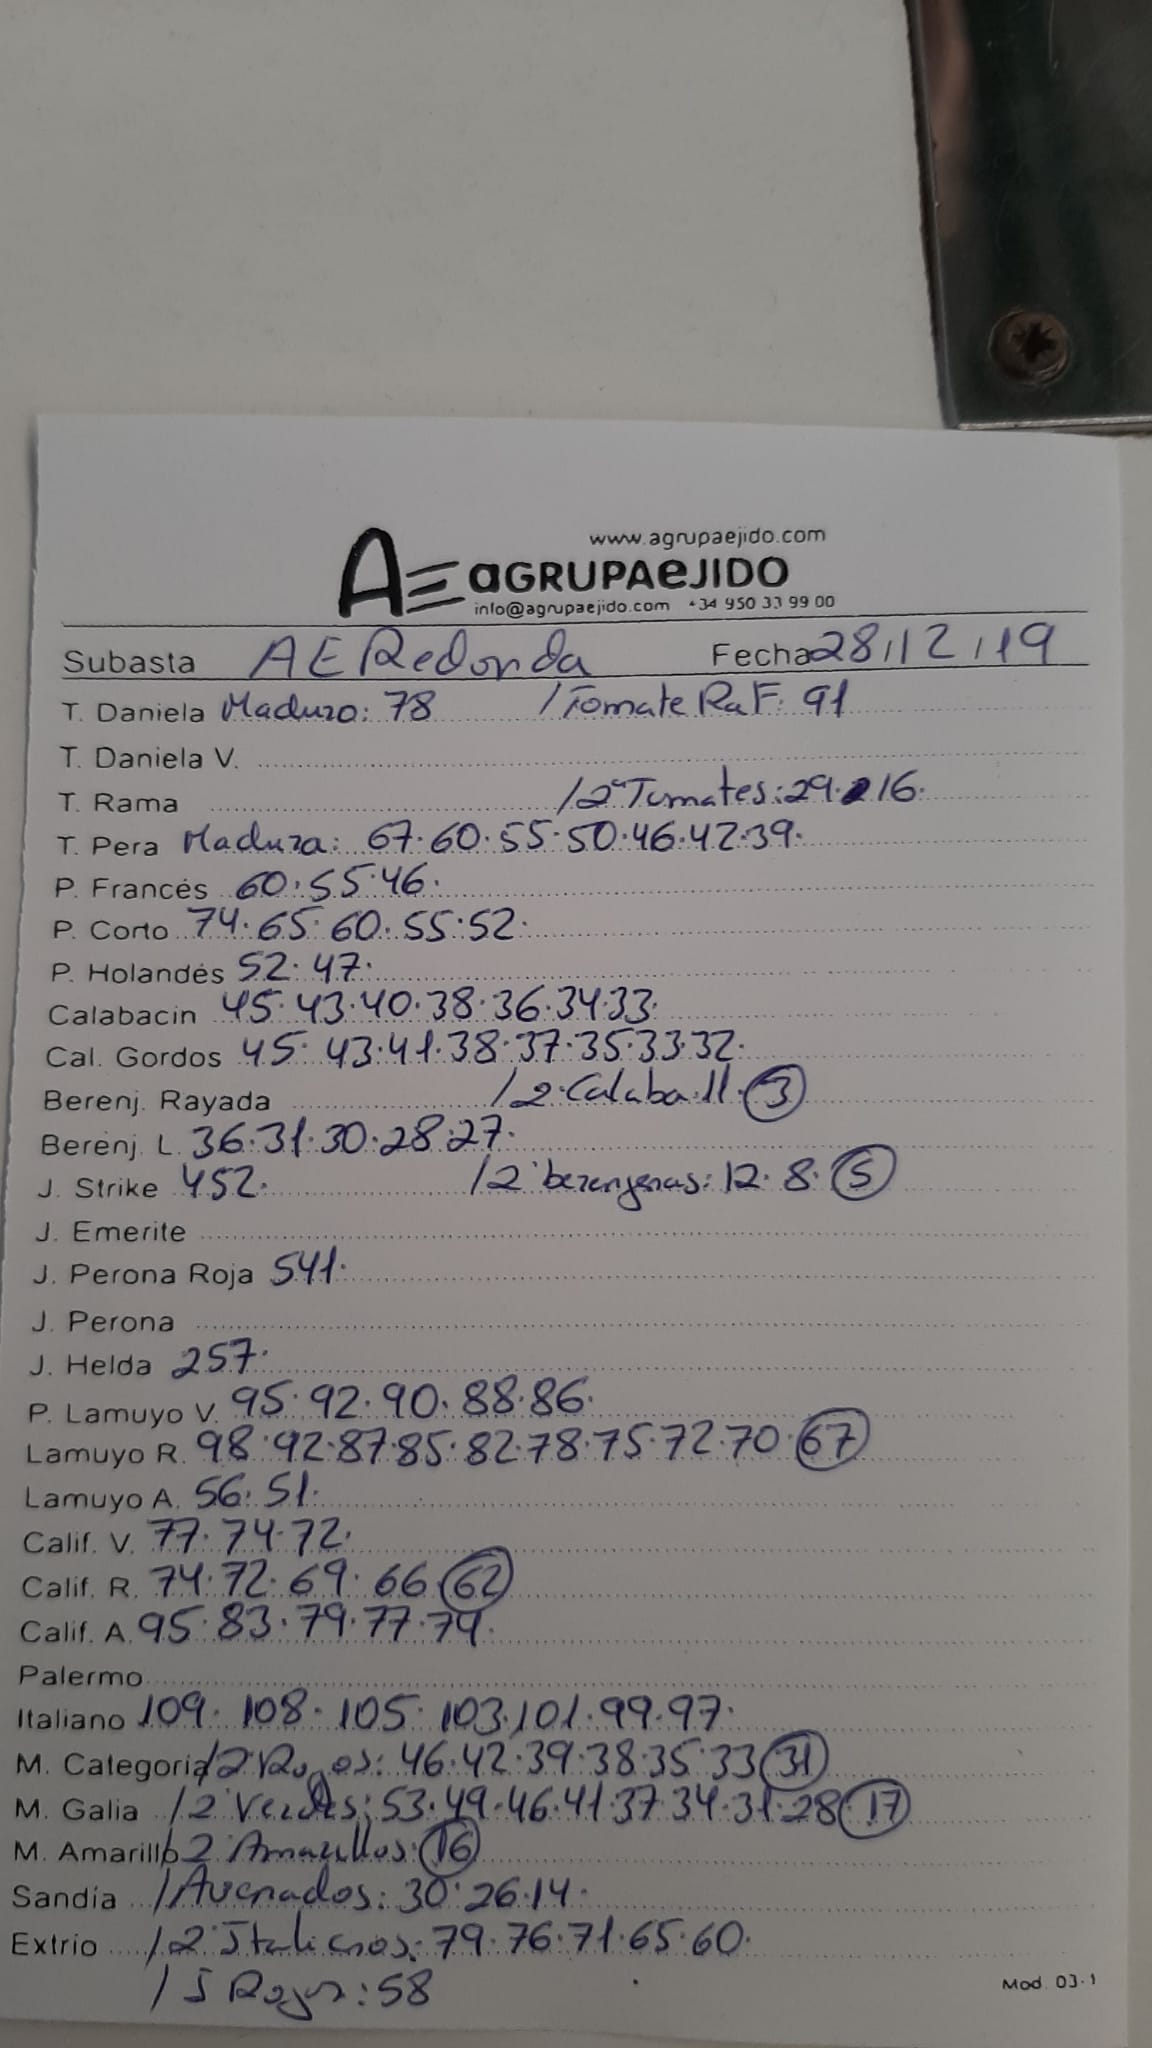 www.agrupaejido.com
AE aGRUPAeJIDO
info@agrupaejido.com +34 950 33 99 00
Subasta AE Redonda Fecha 28/12/19
T. Daniela Maduro: 78 / Tomate RaF: 91
T. Daniela V.
T. Rama / 2ª Tomates: 29. 16.
T. Pera Madura: 67. 60. 55. 50. 46. 42. 39.
P. Francés 60. 55. 46.
P. Corto 74. 65. 60. 55. 52.
P. Holandés 52. 47.
Calabacin 45. 43. 40. 38. 36. 34. 33.
Cal. Gordos 45. 43. 41. 38. 37. 35. 33. 32.
Berenj. Rayada / 2ª Calaba. 11. 3
Berenj. L. 36. 31. 30. 28. 27.
J. Strike 452. / 2ª berenjenas: 12. 8. 5
J. Emerite
J. Perona Roja 541.
J. Perona
J. Helda 257.
P. Lamuyo V. 95. 92. 90. 88. 86.
Lamuyo R. 98. 92. 87. 85. 82. 78. 75. 72. 70. 67
Lamuyo A. 56. 51.
Calif. V. 77. 74. 72.
Calif. R. 74. 72. 69. 66. 62
Calif. A. 95. 83. 79. 77. 74.
Palermo
Italiano 109. 108. 105. 103. 101. 99. 97.
M. Categoria / 2ª Rojos: 46. 42. 39. 38. 35. 33. 31
M. Galia / 2ª Verdes: 53. 49. 46. 41. 37. 34. 31. 28. 17
M. Amarillo 2ª Amarillos: 16
Sandía / Asurnados: 30. 26. 14.
Extrio / 2ª Italianos: 79. 76. 71. 65. 60.
/ I Rojos: 58
Mod. 03-1